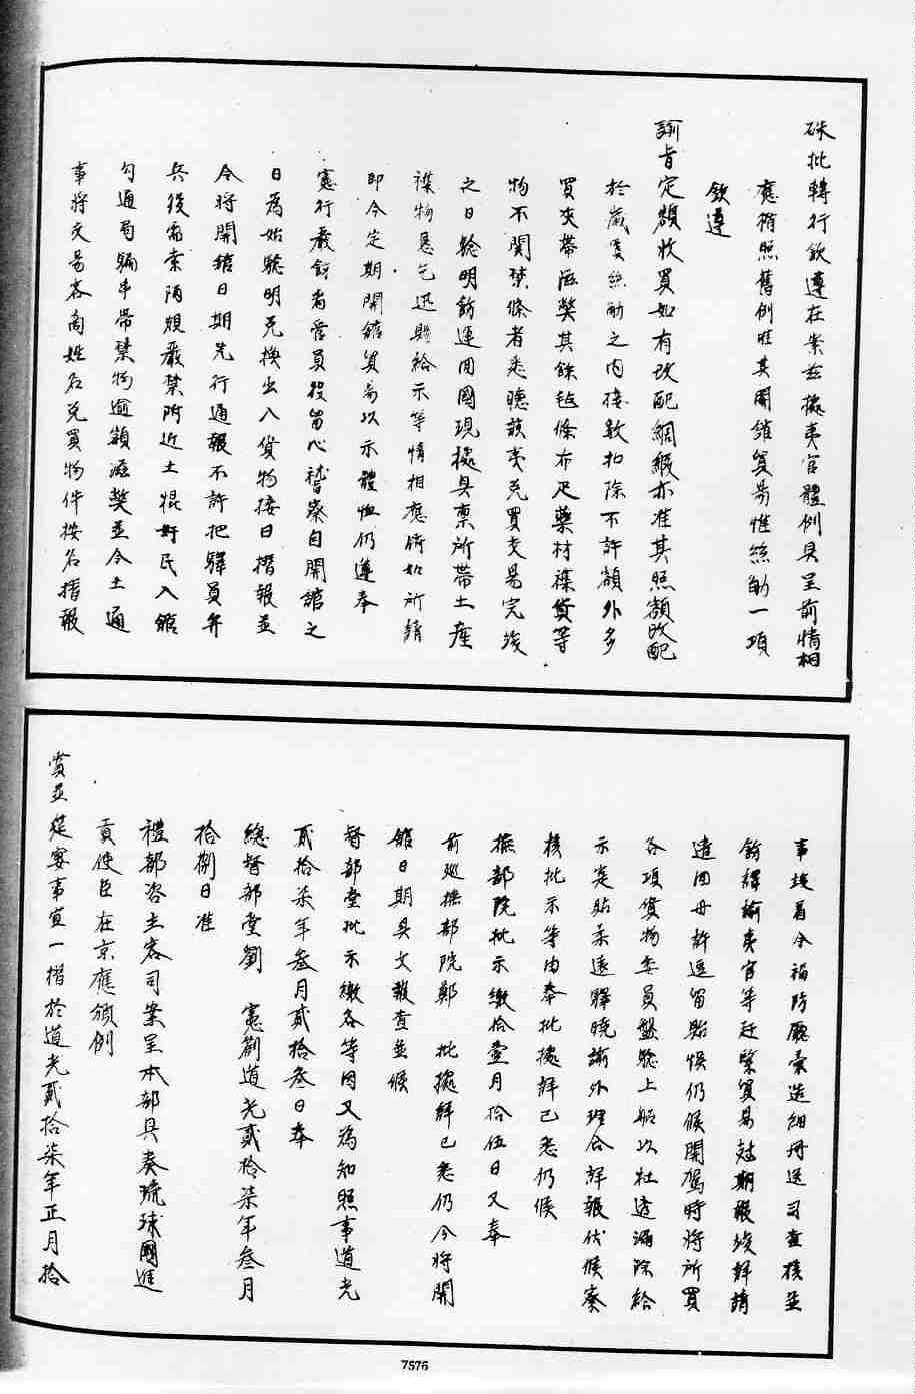 硃批轉行欽遵在案玆據夷官體例具呈前情相
應循照舊例准其開館貿易惟絲觔一項
欽遵
諭旨定額收買如有改配綢緞亦准其照額改配
於歲買絲觔之內按數扣除不許額外多
買夾帶滋獘其餘毡條布疋藥材襍貨等
物不関禁條者悉聽該夷兌買交易完竣
之日驗明飭運回國現據具禀所帶土産
襍物懇乞迅賜給示等情相應倚如所請
即令定期開館貿易以示體恤仍遵奉
憲行嚴飭者當員役留心稽察自開館之
日為始驗明兌換出入貨物按日摺報並
令將開館日期先行通報不許把驛員弁
兵役需索陋規嚴禁附近土棍奸民入館
勾通局騙串帶禁物逾額滋獘並令土通
事將交易客商姓名兌買物件按名摺報
事竣另令福防廳彙造細冊送司查核並
飭譯諭夷官等赶緊貿易趂期報竣觧請
遣回毋許逗留貽悞仍候開駕時將所買
各項貨物委員盤驗上船以杜透漏除給
示葉貼柔遠驛曉諭外理合詳報伏候察
核批示等由奉批據詳已悉仍候
撫部院批示繳拾壹月拾伍日又奉
前廵撫部院鄭　批據詳已悉仍令將開
館日期具文報查並候
督部堂批示繳各等因又為知照事道光
貳拾柒年叁月貳拾叁日奉
總督部堂劉　憲劄道光貳拾柒年叁月
拾捌日准
禮部咨主客司案呈本部具奏琉球國進
貢使臣在京應頒例
賞並筵宴事宜一摺於道光貳拾柒年正月拾
7576